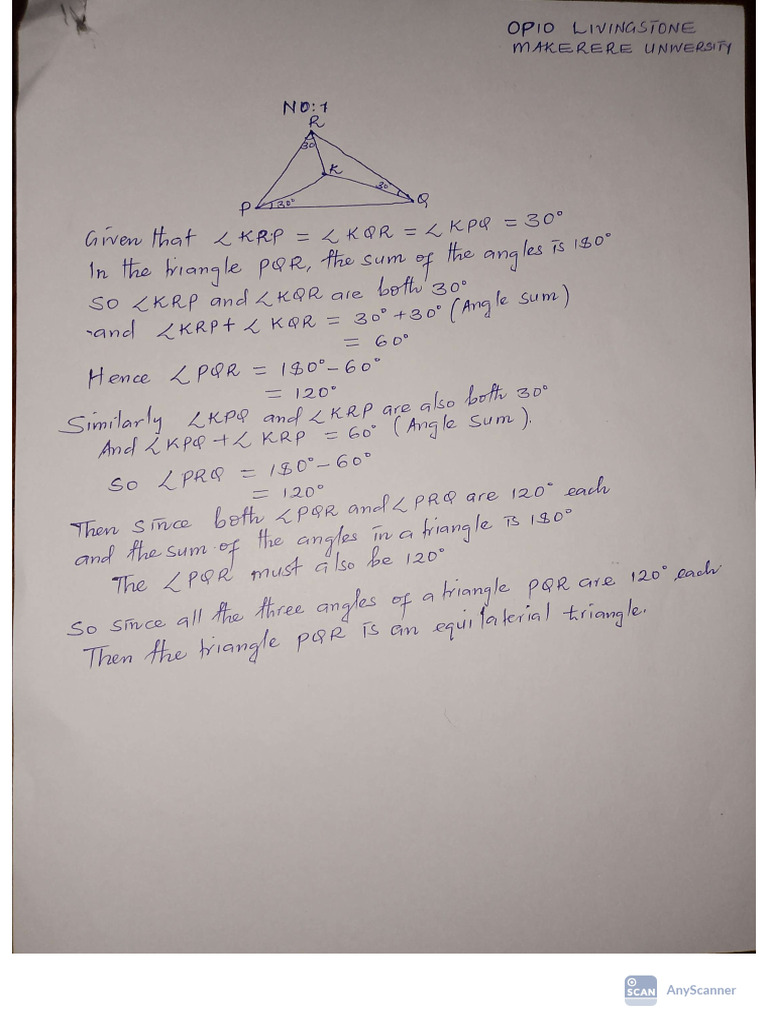 OPIO LIVINGSTONE
MAKERERE UNIVERSITY
NO: 1
R
30
K
30
P
30°
Q
Given that ∠KRP = ∠KQR = ∠KPQ = 30°
In the triangle PQR, the sum of the angles is 180°
so ∠KRP and ∠KQR are both 30°
and ∠KRP + ∠KQR = 30° + 30° (Angle sum)
= 60°
Hence ∠PQR = 180° - 60°
= 120°
Similarly ∠KPQ and ∠KRP are also both 30°
And ∠KPQ + ∠KRP = 60° (Angle sum).
So ∠PRQ = 180° - 60°
= 120°
Then since both ∠PQR and ∠PRQ are 120° each
and the sum of the angles in a triangle is 180°
The ∠PQR must also be 120°
So since all the three angles of a triangle PQR are 120° each
Then the triangle PQR is an equilaterial triangle.
SCAN AnyScanner